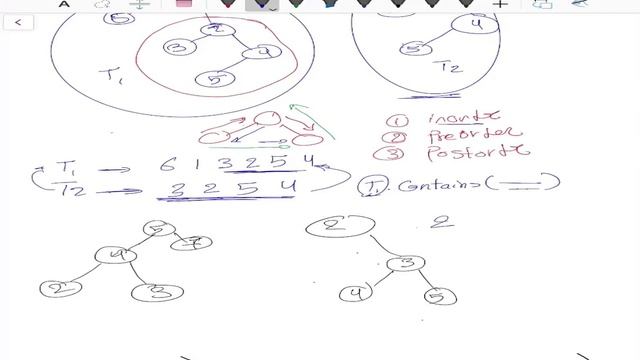 6
2
3
4
5
T1
4
5
T2
① inorder
② Preorder
③ Postorder
T1 → 6 1 3 2 5 4
T2 → 3 2 5 4
T1. Contains( )
5
7
4
2
3
2
2
3
4
5